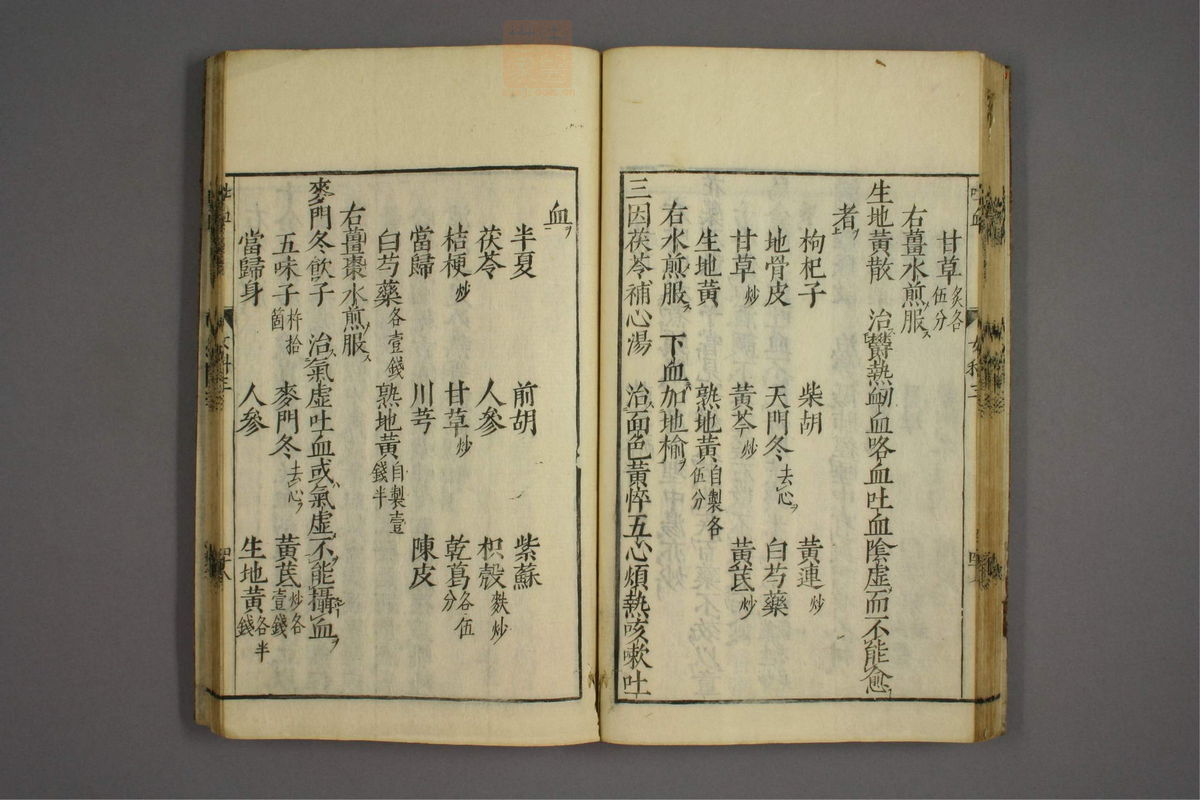 甘草炙各伍分
右薑水煎服ス
生地黃散　治欝熱衂血咯血吐血陰虛而不能愈
者ヲ
枸杞子　柴胡　黃連炒
地骨皮　天門冬去心ヲ　白芍藥
甘草炒　黃芩炒　黃芪炒
生地黃　熟地黃自製各伍分
右水煎服ス　下血加地榆ヲ
三因茯苓補心湯　治面色黃悴五心煩熱咳嗽吐
血ヲ
半夏　前胡　紫蘇
茯苓　人參　枳殼麩炒
桔梗炒　甘草炒　乾葛各伍分
當歸　川芎　陳皮
白芍藥各壹錢　熟地黃自製壹錢半
右薑棗水煎服ス
麥門冬飲子　治氣虛吐血或氣虛不能攝血ヲ
五味子杵拾箇　麥門冬去心ヲ　黃芪炒各壹錢
當歸身　人參　生地黃各半錢
吐血　女科三　四八